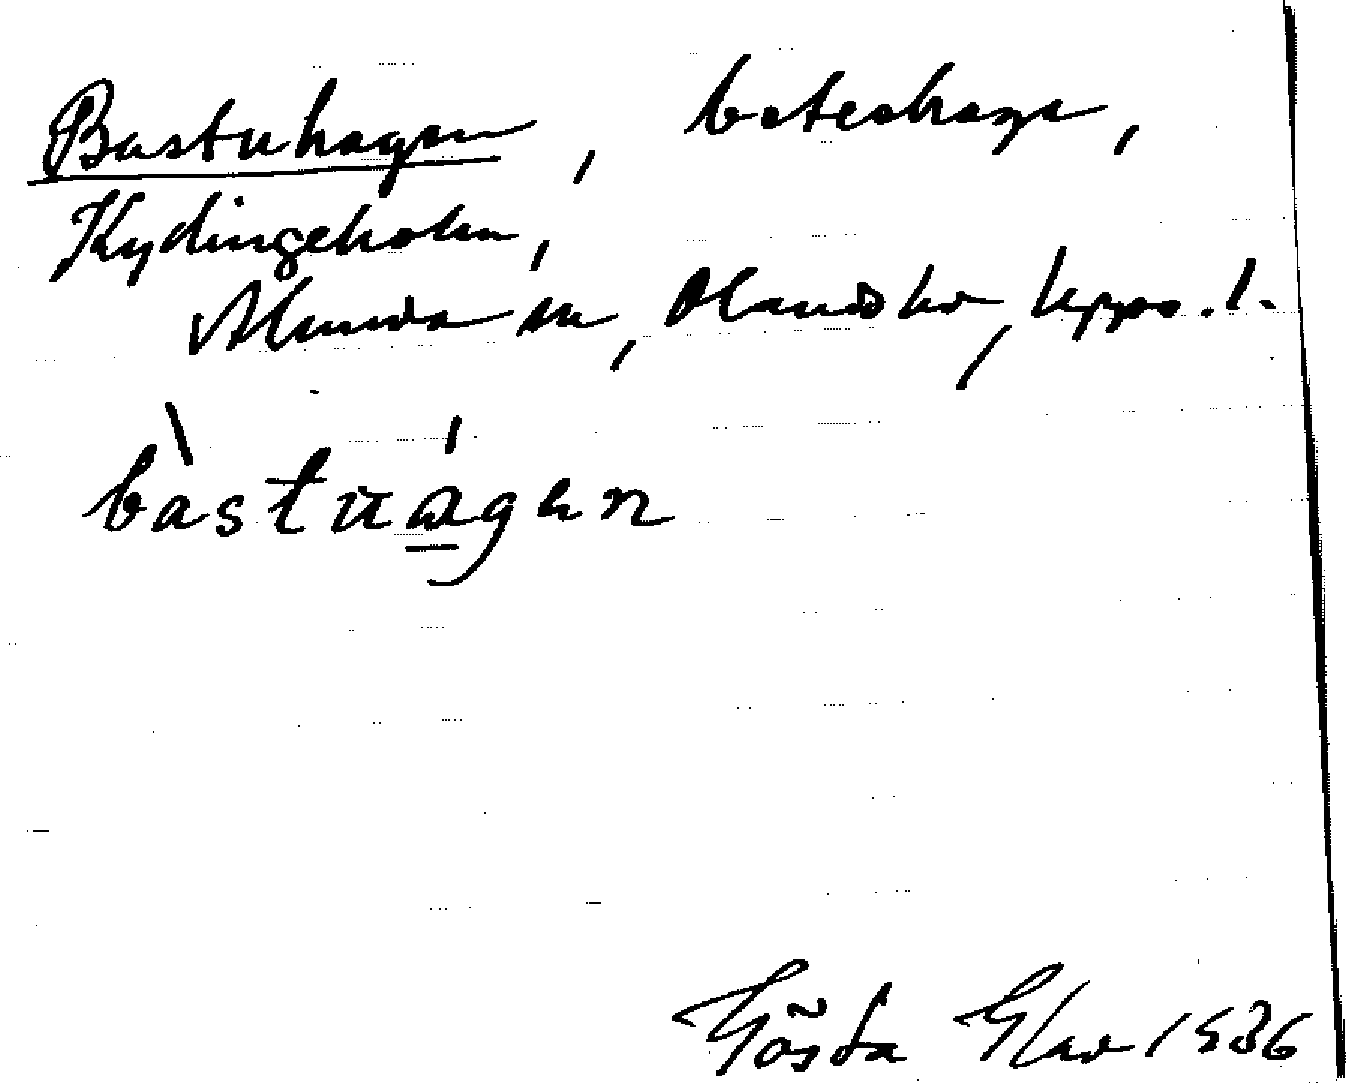 Bastuhagen, beteshage,
Kydingeholm,
Alunda sn, Olands hd, Upps. l.
bàstuágen
Gösta 1936